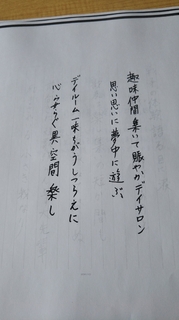 趣味仲間集いて賑やかデイサロン
思い思いに夢中に遊ぶ
デイルーム一味ちがうしつらえに
心安らぐ異空間楽し